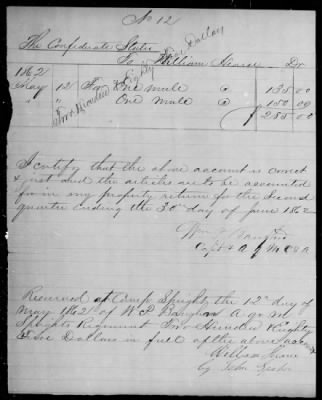 No 12
The Confederate States
To William Dr
1862
May 12 For One mule @ 135 00
" " One Mule @ 150 00
285 00
Two Hundred & Eighty Five Dollars
I certify that the above account is correct
& just and the articles are to be accounted
for in my property return for the Second
quarter ending the 30th day of June 1862
Wm
Capt & A Q M C S A
Received at Camp Speight the 12th day of
May 1862 of W P A Q M
Speights Regiment Two Hundred & Eighty
Five Dollars in full of the above
William
by John